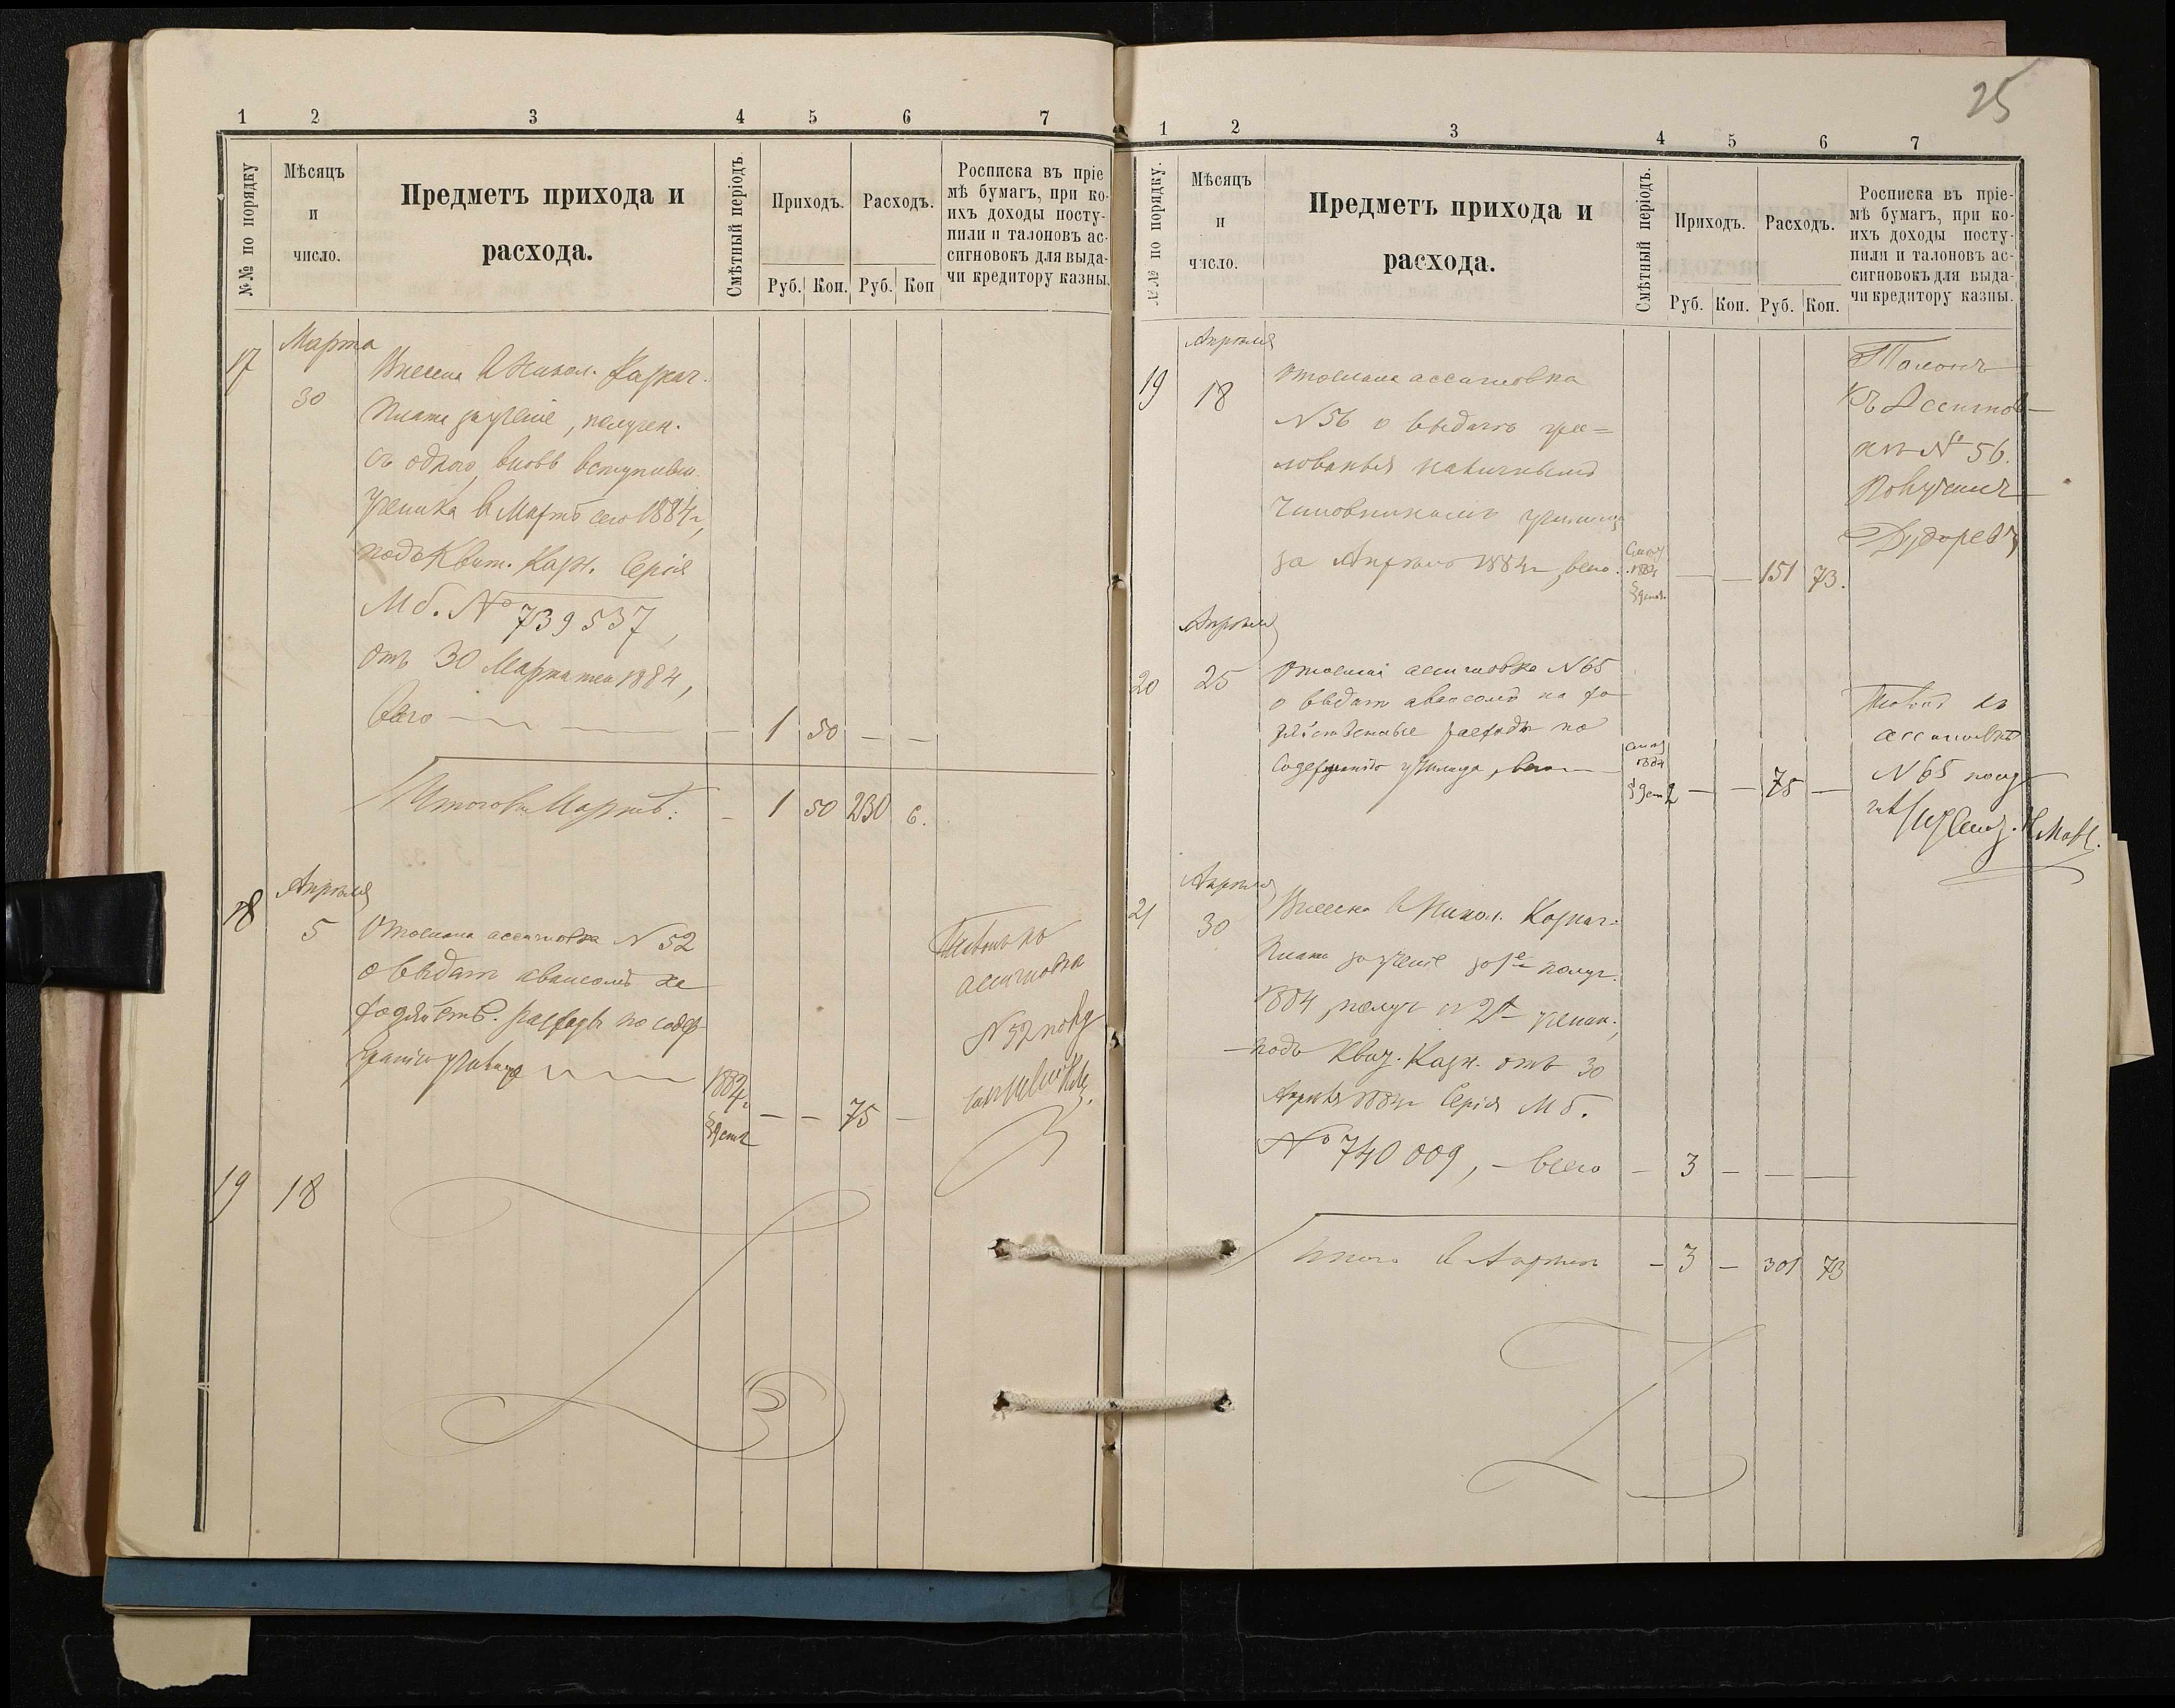 25
1 2 3 4 5 6 7
№№ по порядку
Мѣсяцъ
и
число.
Предметъ прихода и
расхода.
Смѣтный періодъ
Приходъ.
Расходъ.
Руб. Коп. Руб. Коп
Росписка въ пріе
мѣ бумагъ, при ко-
ихъ доходы посту-
пили и талоновъ ас-
сигновокъ для выда-
чи кредитору казны.
Марта
17 30 Внесена в Никол. Казнач.
Плата за ученіе, получен.
съ одного вновь вступивш.
Ученика в Мартѣ сего 1884 г,
подъ Квит. Казн. Серія
Мб. № 739537,
отъ 30 Марта 1884,
Всего — 1 50 — —
Итого въ Мартѣ: — 1 50 230 6.
Апрѣля
18 5 Отослана ассигновка № 52
о выдачѣ авансомъ
хозяйств. расходы по содер-
жанію училища 1884 г
§ 9 ст 2 — — 75 —
ассигновка
№ 52
19 18
1 2 3 4 5 6 7
№№ по порядку.
Мѣсяцъ
и
число.
Предметъ прихода и
расхода.
Смѣтный періодъ.
Приходъ.
Расходъ.
Руб. Коп. Руб. Коп.
Росписка въ пріе-
мѣ бумагъ, при ко-
ихъ доходы посту-
пили и талоновъ ас-
сигновокъ для выда-
чи кредитору казны.
Апрѣля
19 18 Отослана ассигновка
№ 56 о выдачѣ жа=
лованья наличнымъ
Чиновникамъ училища
за Апрѣль 1884 г, всего. — — 151 73.
Талонъ
къ Ассигнов—
кѣ № 56.
Получилъ
Апрѣля
20 25 Отослана ассигновка № 65
о выдачѣ авансомъ на хо—
зяйственные расходы по
Содержанію училища, всего — 1884
§ 9 ст 2 — — 75 —
Талонъ къ
ассигновкѣ
№ 65
Апрѣля
21 30 Внесена в Никол. Казнач=
Плата за ученіе за 1е полуг.
1884, получ съ 2х ученик.,
подъ Квит. Казн. отъ 30
Апрѣля 1884 г Серія Мб.
№ 740009, — всего — 3 — — —
Итого в Апрѣлѣ — 3 — 301 73